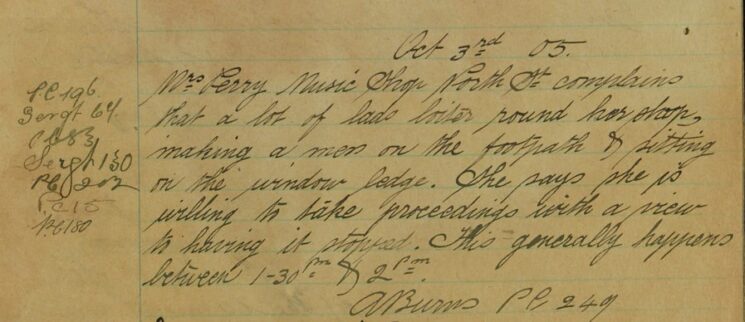 Oct 3rd 05.
Mrs Perry Music Shop North St complains
that a lot of lads loiter round her shop,
making a mess on the footpath & sitting
on the window ledge. She says she is
willing to take proceedings with a view
to having it stopped. This generally happens
between 1-30 pm & 2 pm
A Burns P.C. 249
P.C 196.
Sergt 64.
Sergt 130
P.C 202
P.C 15
P.C 180